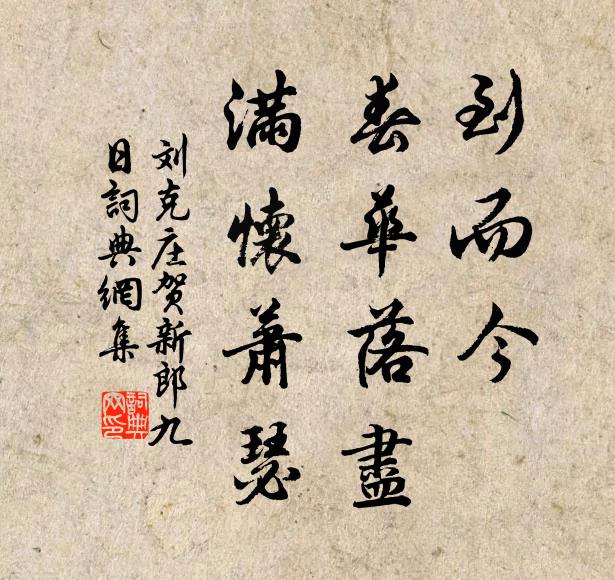 到而今
春華落盡
滿懷蕭瑟
刘克庄贺新郎九
日詞典網集
詞典
网印